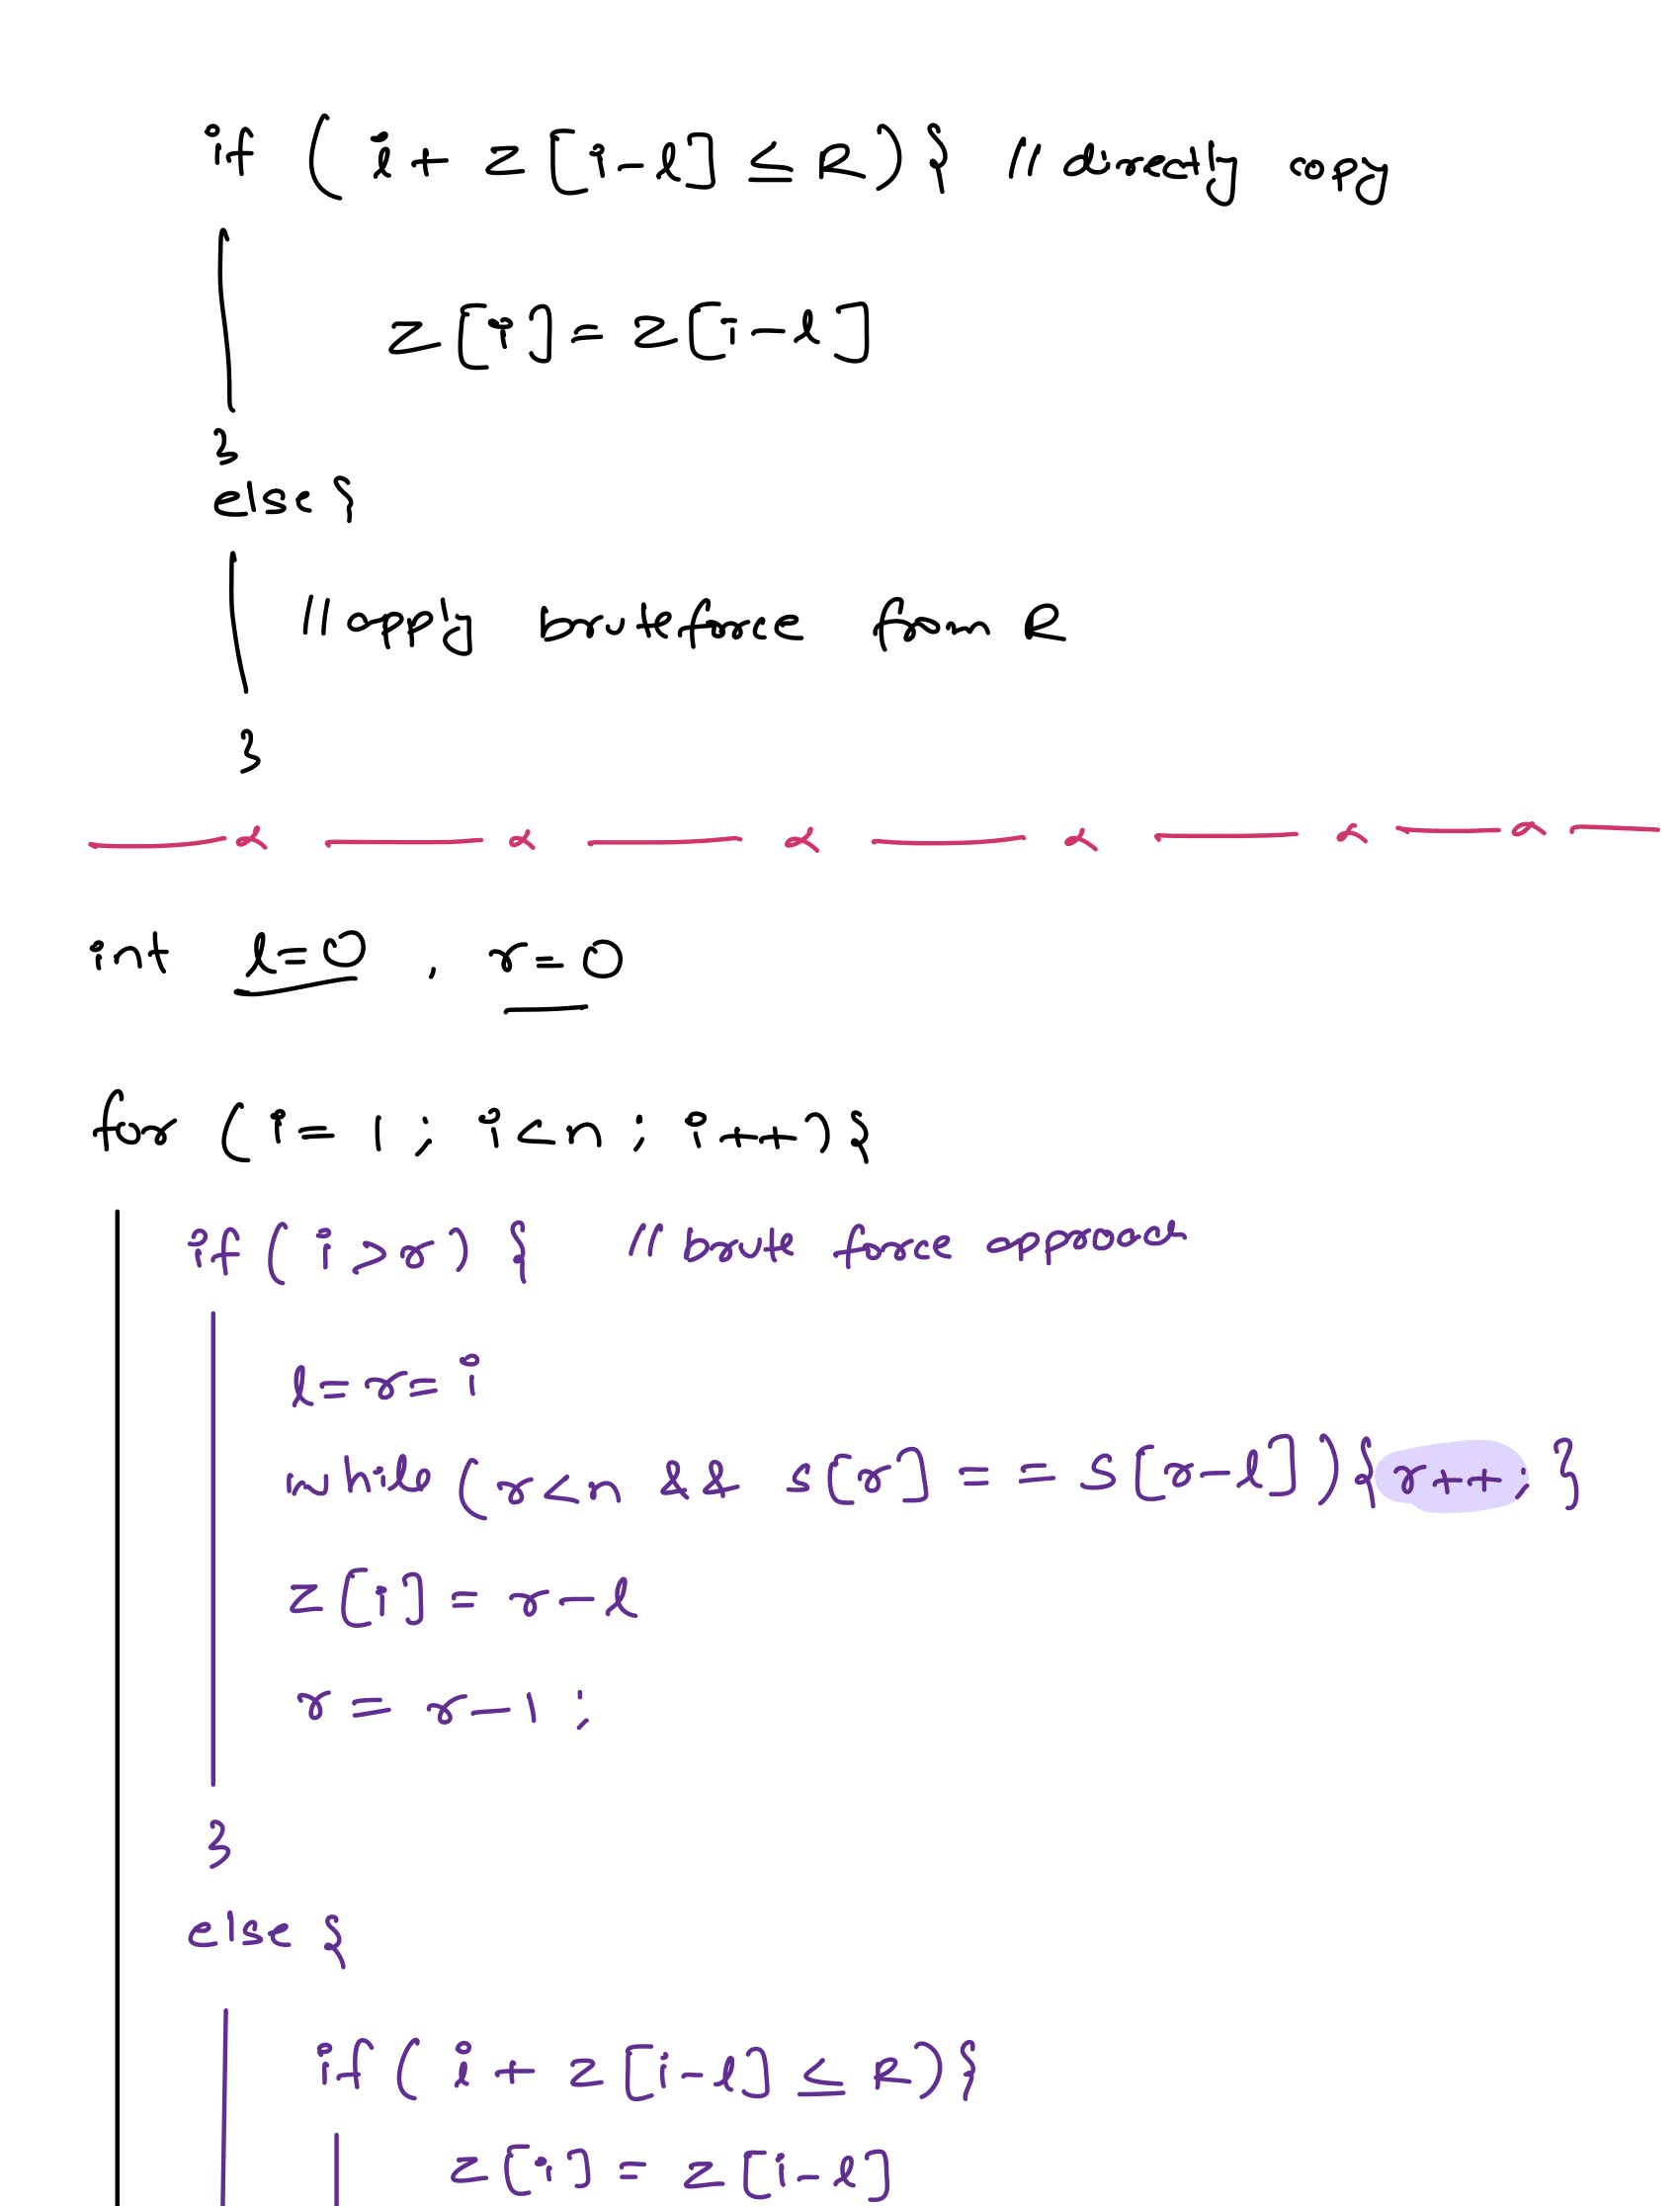 if ( i + z[i-l] ≤ R){ // directly copy
z[i] = z[i-l]
}
else {
// apply bruteforce from R
}
int l=0 , r=0
for ( i = 1 ; i<n ; i++){
if ( i >r ) { // brute force approach
l=r= i
while (r<n && s[r] == s[r-l]){ r++; }
z[i] = r-l
r = r-1 ;
}
else {
if ( i + z[i-l] ≤ R){
z[i] = z[i-l]